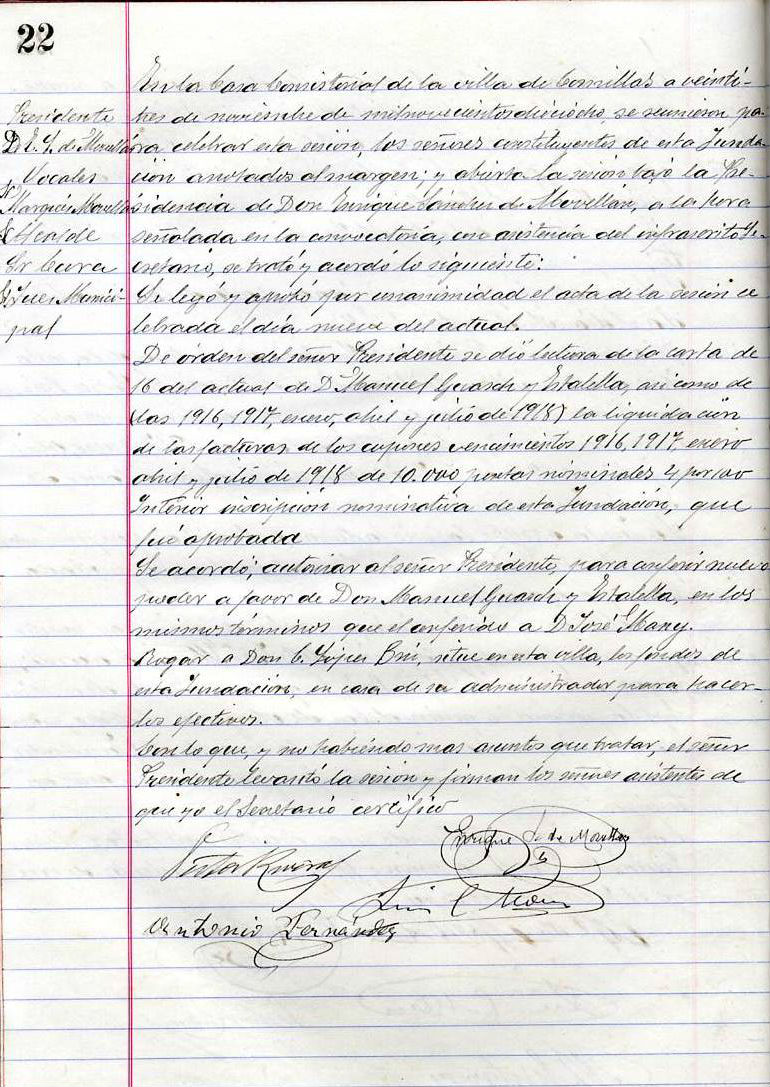 22
Presidente
D. E. S. de Movellán
Vocales
Sr Marqués Movellán
Sr Alcalde
Sr Cura
Sr Juez Munici-
pal
En la Casa Consistorial de la villa de Comillas a veinti-
tres de noviembre de mil novecientos dieciocho, se reunieron pa-
ra celebrar esta sesión, los señores constituyentes de esta Funda-
ción anotados al margen; y abierta la sesión bajo la Pre-
sidencia de Don Enrique Sánchez de Movellán, a la hora
señalada en la convocatoria, con asistencia del infrascrito Se-
cretario, se trató y acordó lo siguiente:
Se leyó y aprobó por unanimidad el acta de la sesión ce-
lebrada el día nueve del actual.
De orden del señor Presidente se dió lectura de la carta de
16 del actual de D. Manuel Guasch y Estalella, asi como de
(las 1916, 1917, enero, abril y julio de 1918) la liquidación
de las facturas de los cupones vencimientos 1916, 1917, enero
abril y julio de 1918 de 10.000 pesetas nominales 4 por 100
Interior inscripción nominativa de esta Fundación, que
fué aprobada
Se acordó; autorizar al señor Presidente, para conferir nuevo
poder a favor de Don Manuel Guasch y Estalella, en los
mismos términos que el conferido a D. José Many.
Rogar a Don C. López Brú, sitúe en esta villa, los fondos de
esta Fundación, en casa de su administrador para hacer-
los efectivos.
Con lo que, y no habiéndo mas asuntos que tratar, el señor
Presidente levantó la sesión y firman los señores asistentes de
que yo el Secretario certifico
Enrique S. de Movellán
Antonio Fernández